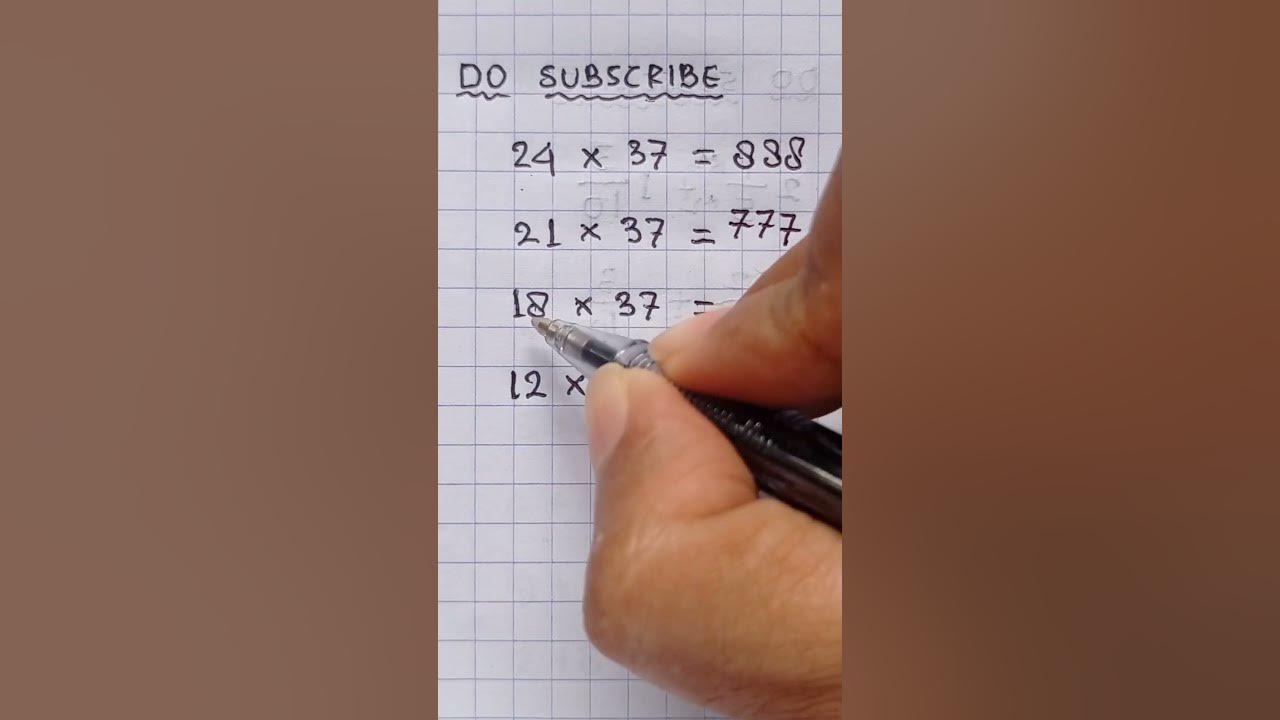 DO SUBSCRIBE
24 × 37 = 888
21 × 37 = 777
18 × 37 =
12 ×